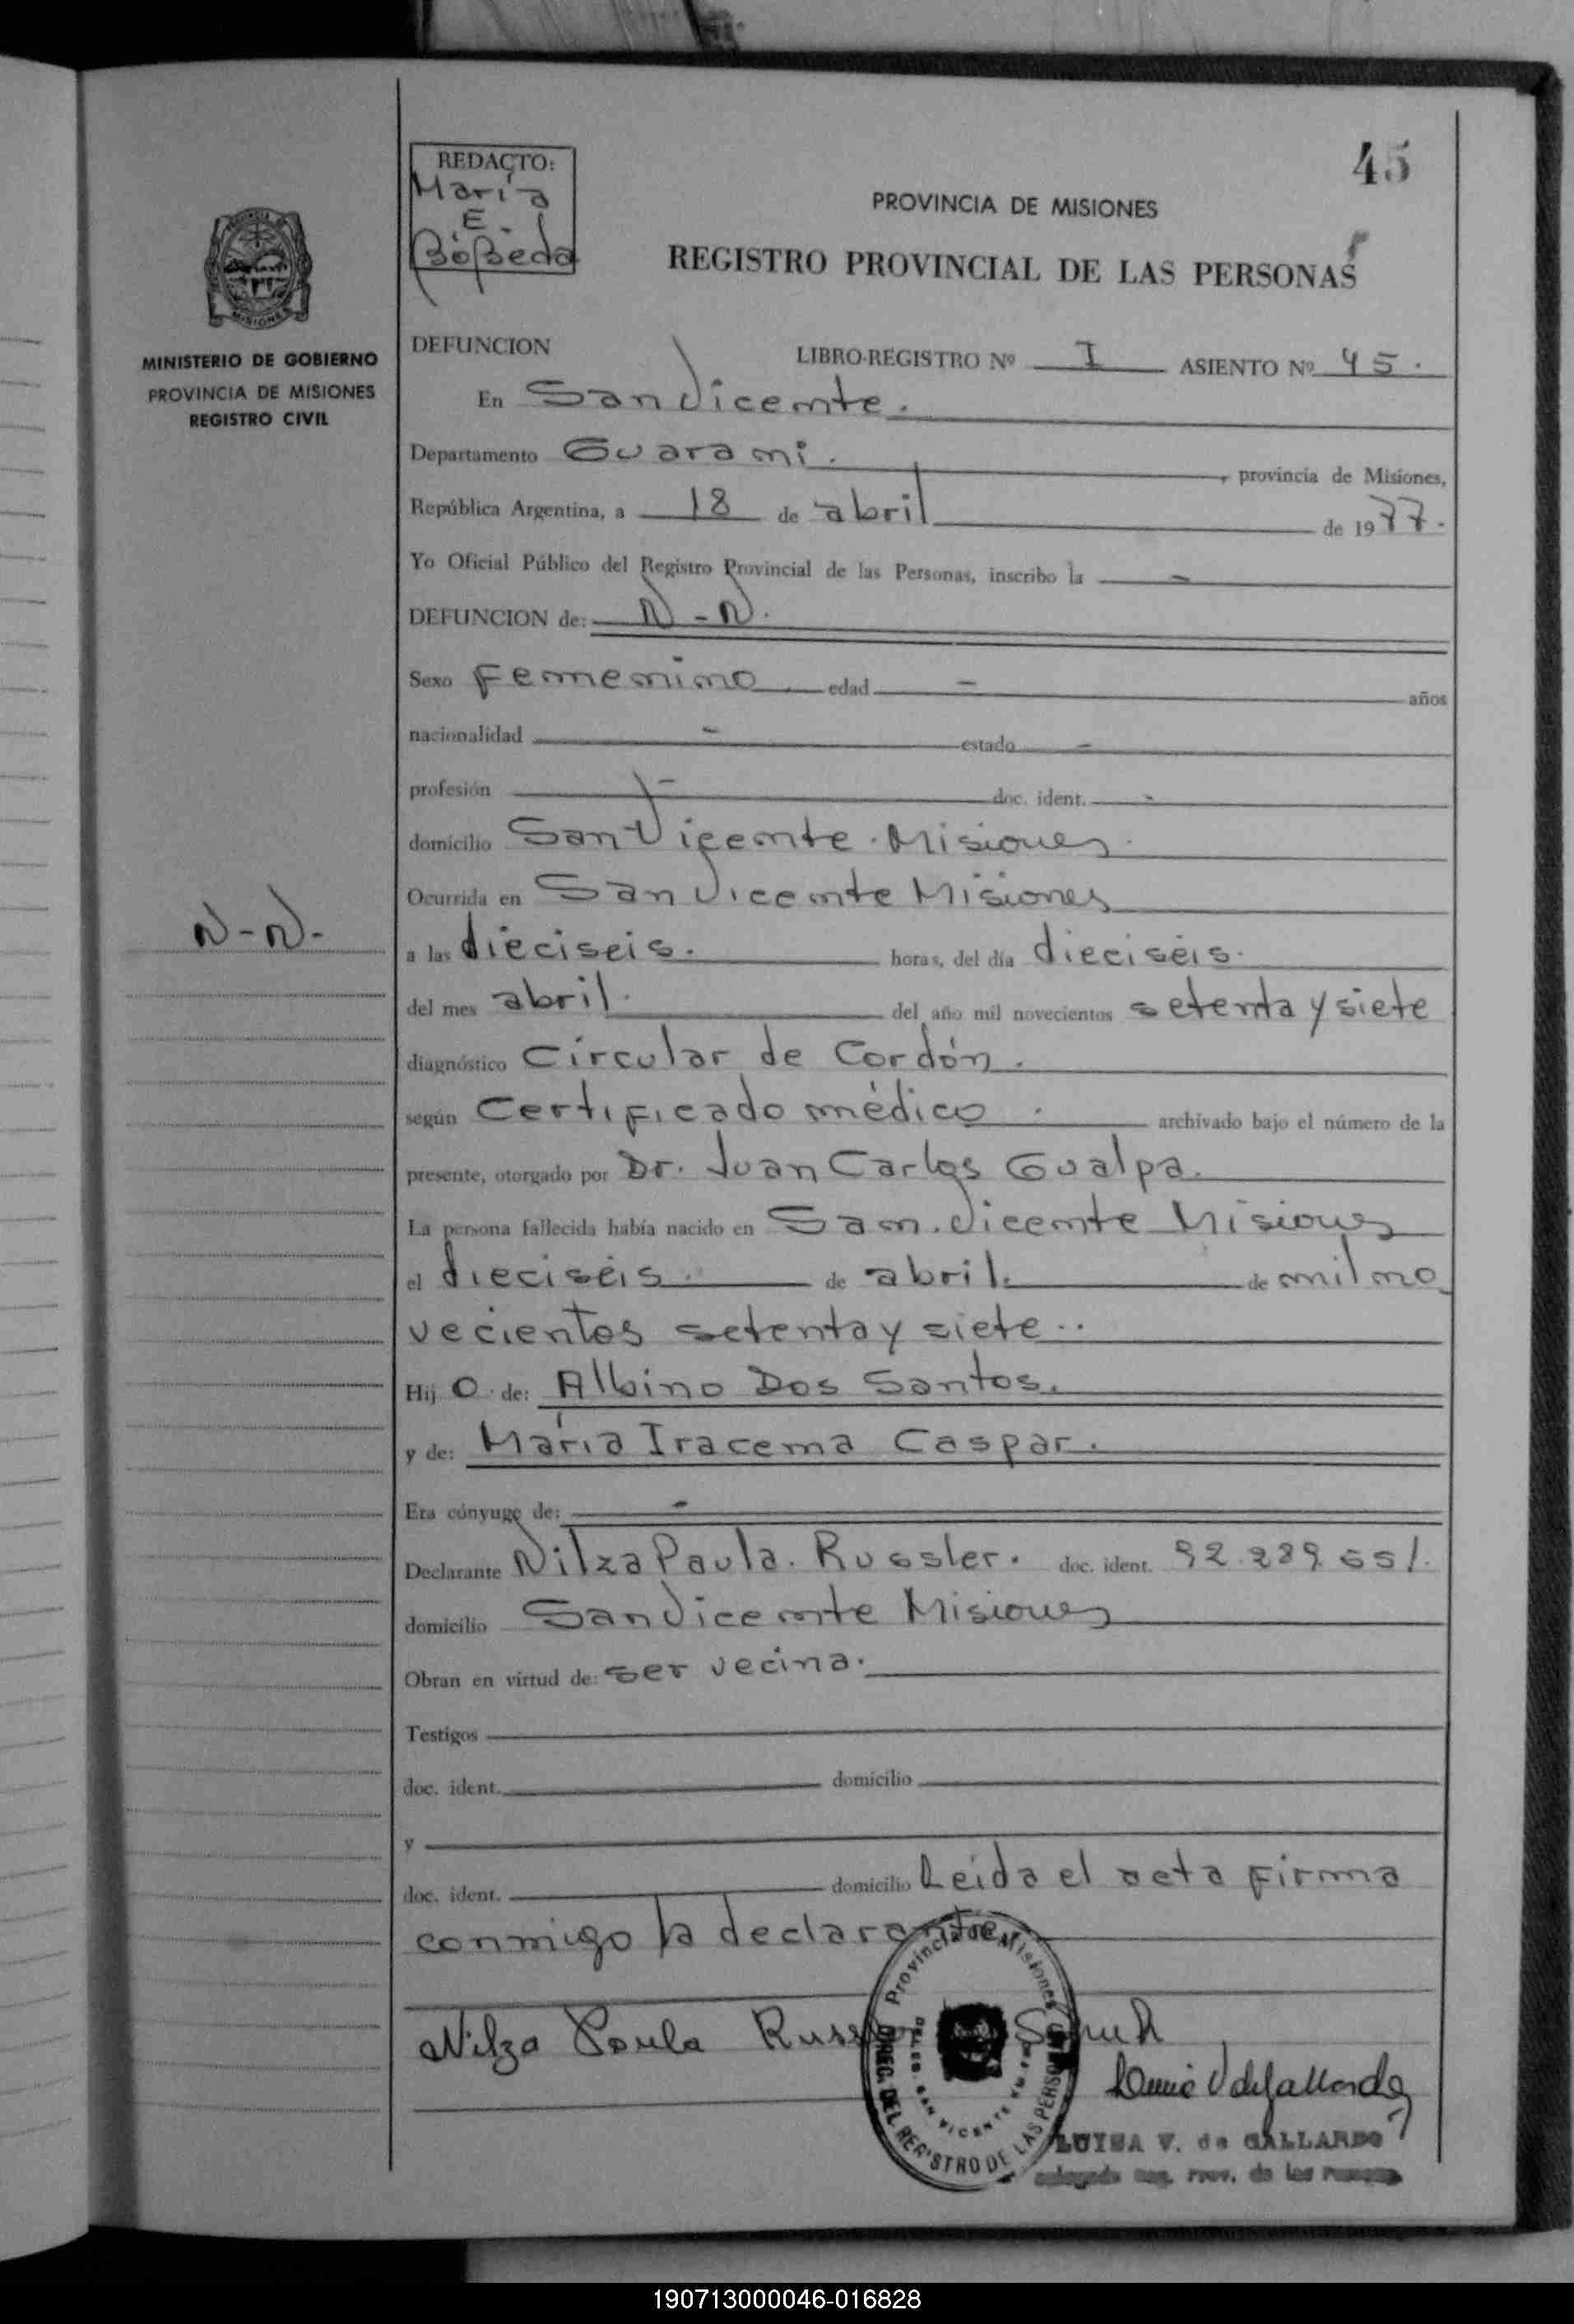 45
REDACTO:
María
E.
PROVINCIA DE MISIONES
REGISTRO PROVINCIAL DE LAS PERSONAS
MINISTERIO DE GOBIERNO
PROVINCIA DE MISIONES
REGISTRO CIVIL
DEFUNCION LIBRO-REGISTRO Nº I ASIENTO Nº 45.
En San Vicente.
Departamento Guarani. , provincia de Misiones,
República Argentina, a 18 de abril de 1977.
Yo Oficial Público del Registro Provincial de las Personas, inscribo la -
DEFUNCION de: N-N.
Sexo Femenino edad - años
nacionalidad - estado -
profesión - doc. ident. -
domicilio San Vicente. Misiones.
Ocurrida en San Vicente Misiones
N-N-
a las dieciseis. horas, del día dieciséis.
del mes abril. del año mil novecientos setenta y siete
diagnóstico Circular de Cordón.
según Certificado médico. archivado bajo el número de la
presente, otorgado por Dr. Juan Carlos Gualpa.
La persona fallecida había nacido en San. Vicente Misiones
el dieciséis. de abril. de mil no
vecientos setenta y siete..
Hij o. de: Albino Dos Santos.
y de: María Iracema Caspar.
Era cónyuge de: -
Declarante Nilza Paula. Russler. doc. ident. 92.289.651.
domicilio San Vicente Misiones
Obran en virtud de: ser vecina.
Testigos
doc. ident. domicilio
y
doc. ident. domicilio Leída el acta firma
conmigo la declarante.
Nilza Paula Russler
Provincia de Misiones
DIREC. DEL REGISTRO DE LAS PERSONAS
LUISA V. de GALLARDO
190713000046-016828